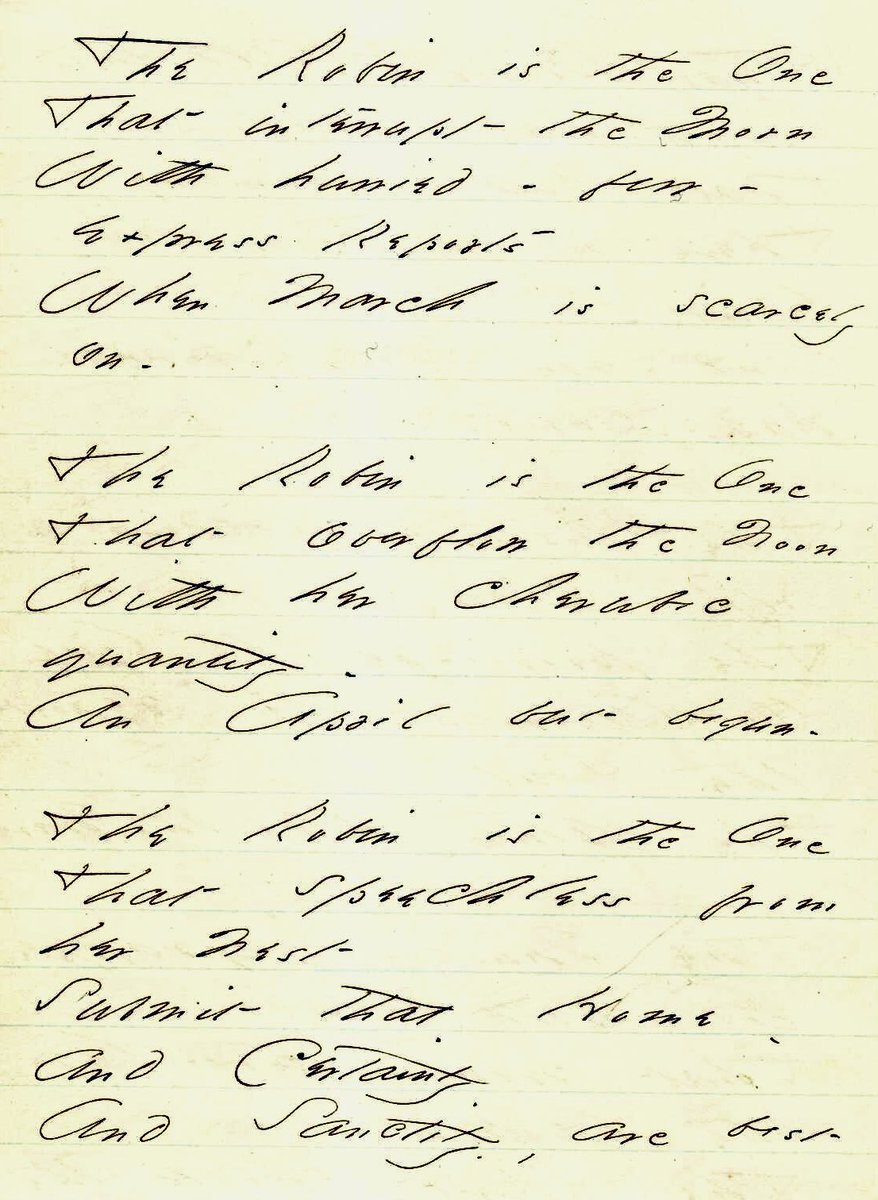 The Robin is the One
That interrupt the Morn
With hurried - few -
Express Reports
When March is scarcely
On -
The Robin is the One
That overflow the Noon
With her cherubic
quantity -
An April but begun -
The Robin is the One
That speechless from
her Nest
Submit that Home -
And Certainty
And Sanctity, are best